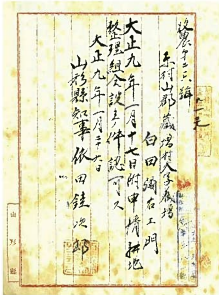 東村山郡蔵増村大字蔵増
大正九年一月十七日附申請耕地
整理組合設立ノ件認可ス
大正九年一月二十六日
山形縣知事依田銈次郎
山形縣